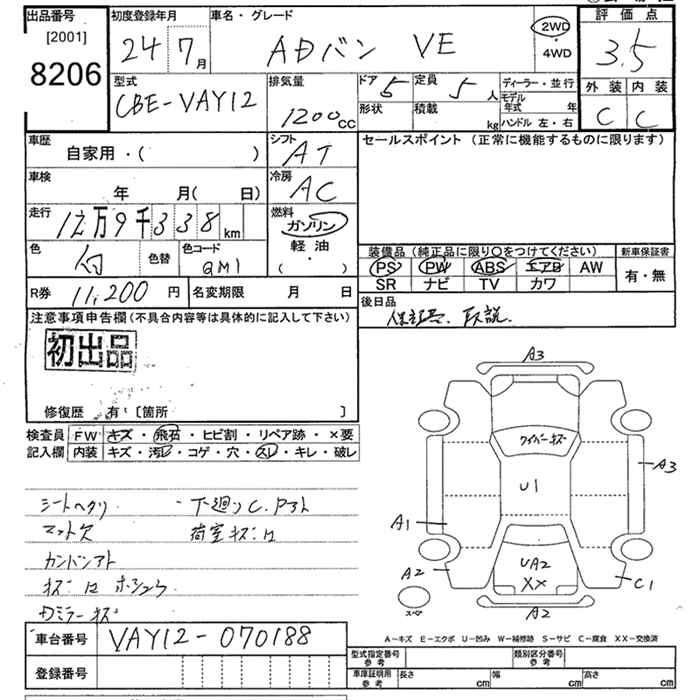 出品番号 初度登録年月 車名・グレード 評価点
[2001] 24 7月 ADバン VE 2WD・4WD 3.5
8206
型式 排気量 ドア 5 定員 5人 ディーラー・並行 外装 内装
CBE-VAY12 1200cc 形状 積載 kg モデル年式 年 C C
ハンドル 左・右
車歴 シフト セールスポイント (正常に機能するものに限ります)
自家用・( ) AT
車検 年 月(日) 冷房 AC
走行 12万9千338km 燃料 ガソリン
軽油・( )
色 白 色替 色コード QM1
装備品(純正品に限り○をつけてください) 新車保証書
PS PW ABS エアB AW 有・無
SR ナビ TV カワ
R券 11,200円 名変期限 月 日 後日品
保証書、取説.
注意事項申告欄(不具合内容等は具体的に記入して下さい)
初出品
修復歴 有・[箇所 ]
検査員記入欄 FW キズ・飛石・ヒビ割・リペア跡・×要
内装 キズ・汚レ・コゲ・穴・スレ・キレ・破レ
シートヘタリ ・下廻りC.Pアト
マット欠 荷室キズ・凹
カンバンアト
キズ・凹
ミラーキズ
A3
ワイパーキズ
A3
U1
A1
UA2
XX
A2
C1
A2
スペア
A-キズ E-エクボ U-凹み W-補修跡 S-サビ C-腐食 XX-交換済
車台番号 VAY12-070188
登録番号
型式指定番号 参考 類別区分番号 参考
車庫証明用 参考 長さ cm 幅 cm 高さ cm